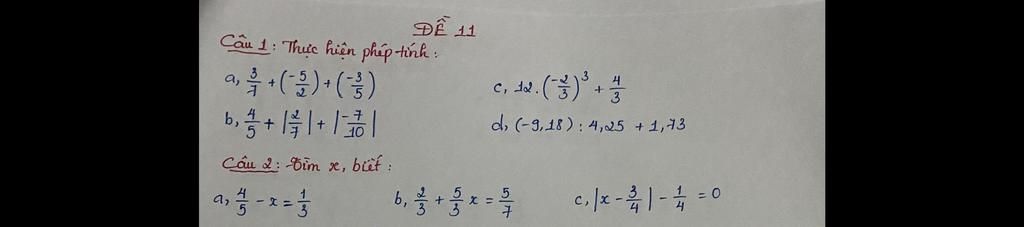 ĐỀ 11
Câu 1: Thực hiện phép tính:
a, 3/7 + (-5/2) + (-3/5)
c, 12.(-2/3)³ + 4/3
b, 4/5 + |2/7| + |-7/10|
d, (-9,18) : 4,25 + 1,73
Câu 2: Tìm x, biết:
a, 4/5 - x = 1/3
b, 2/3 + 5/3 x = 5/7
c, |x - 3/4| - 1/4 = 0